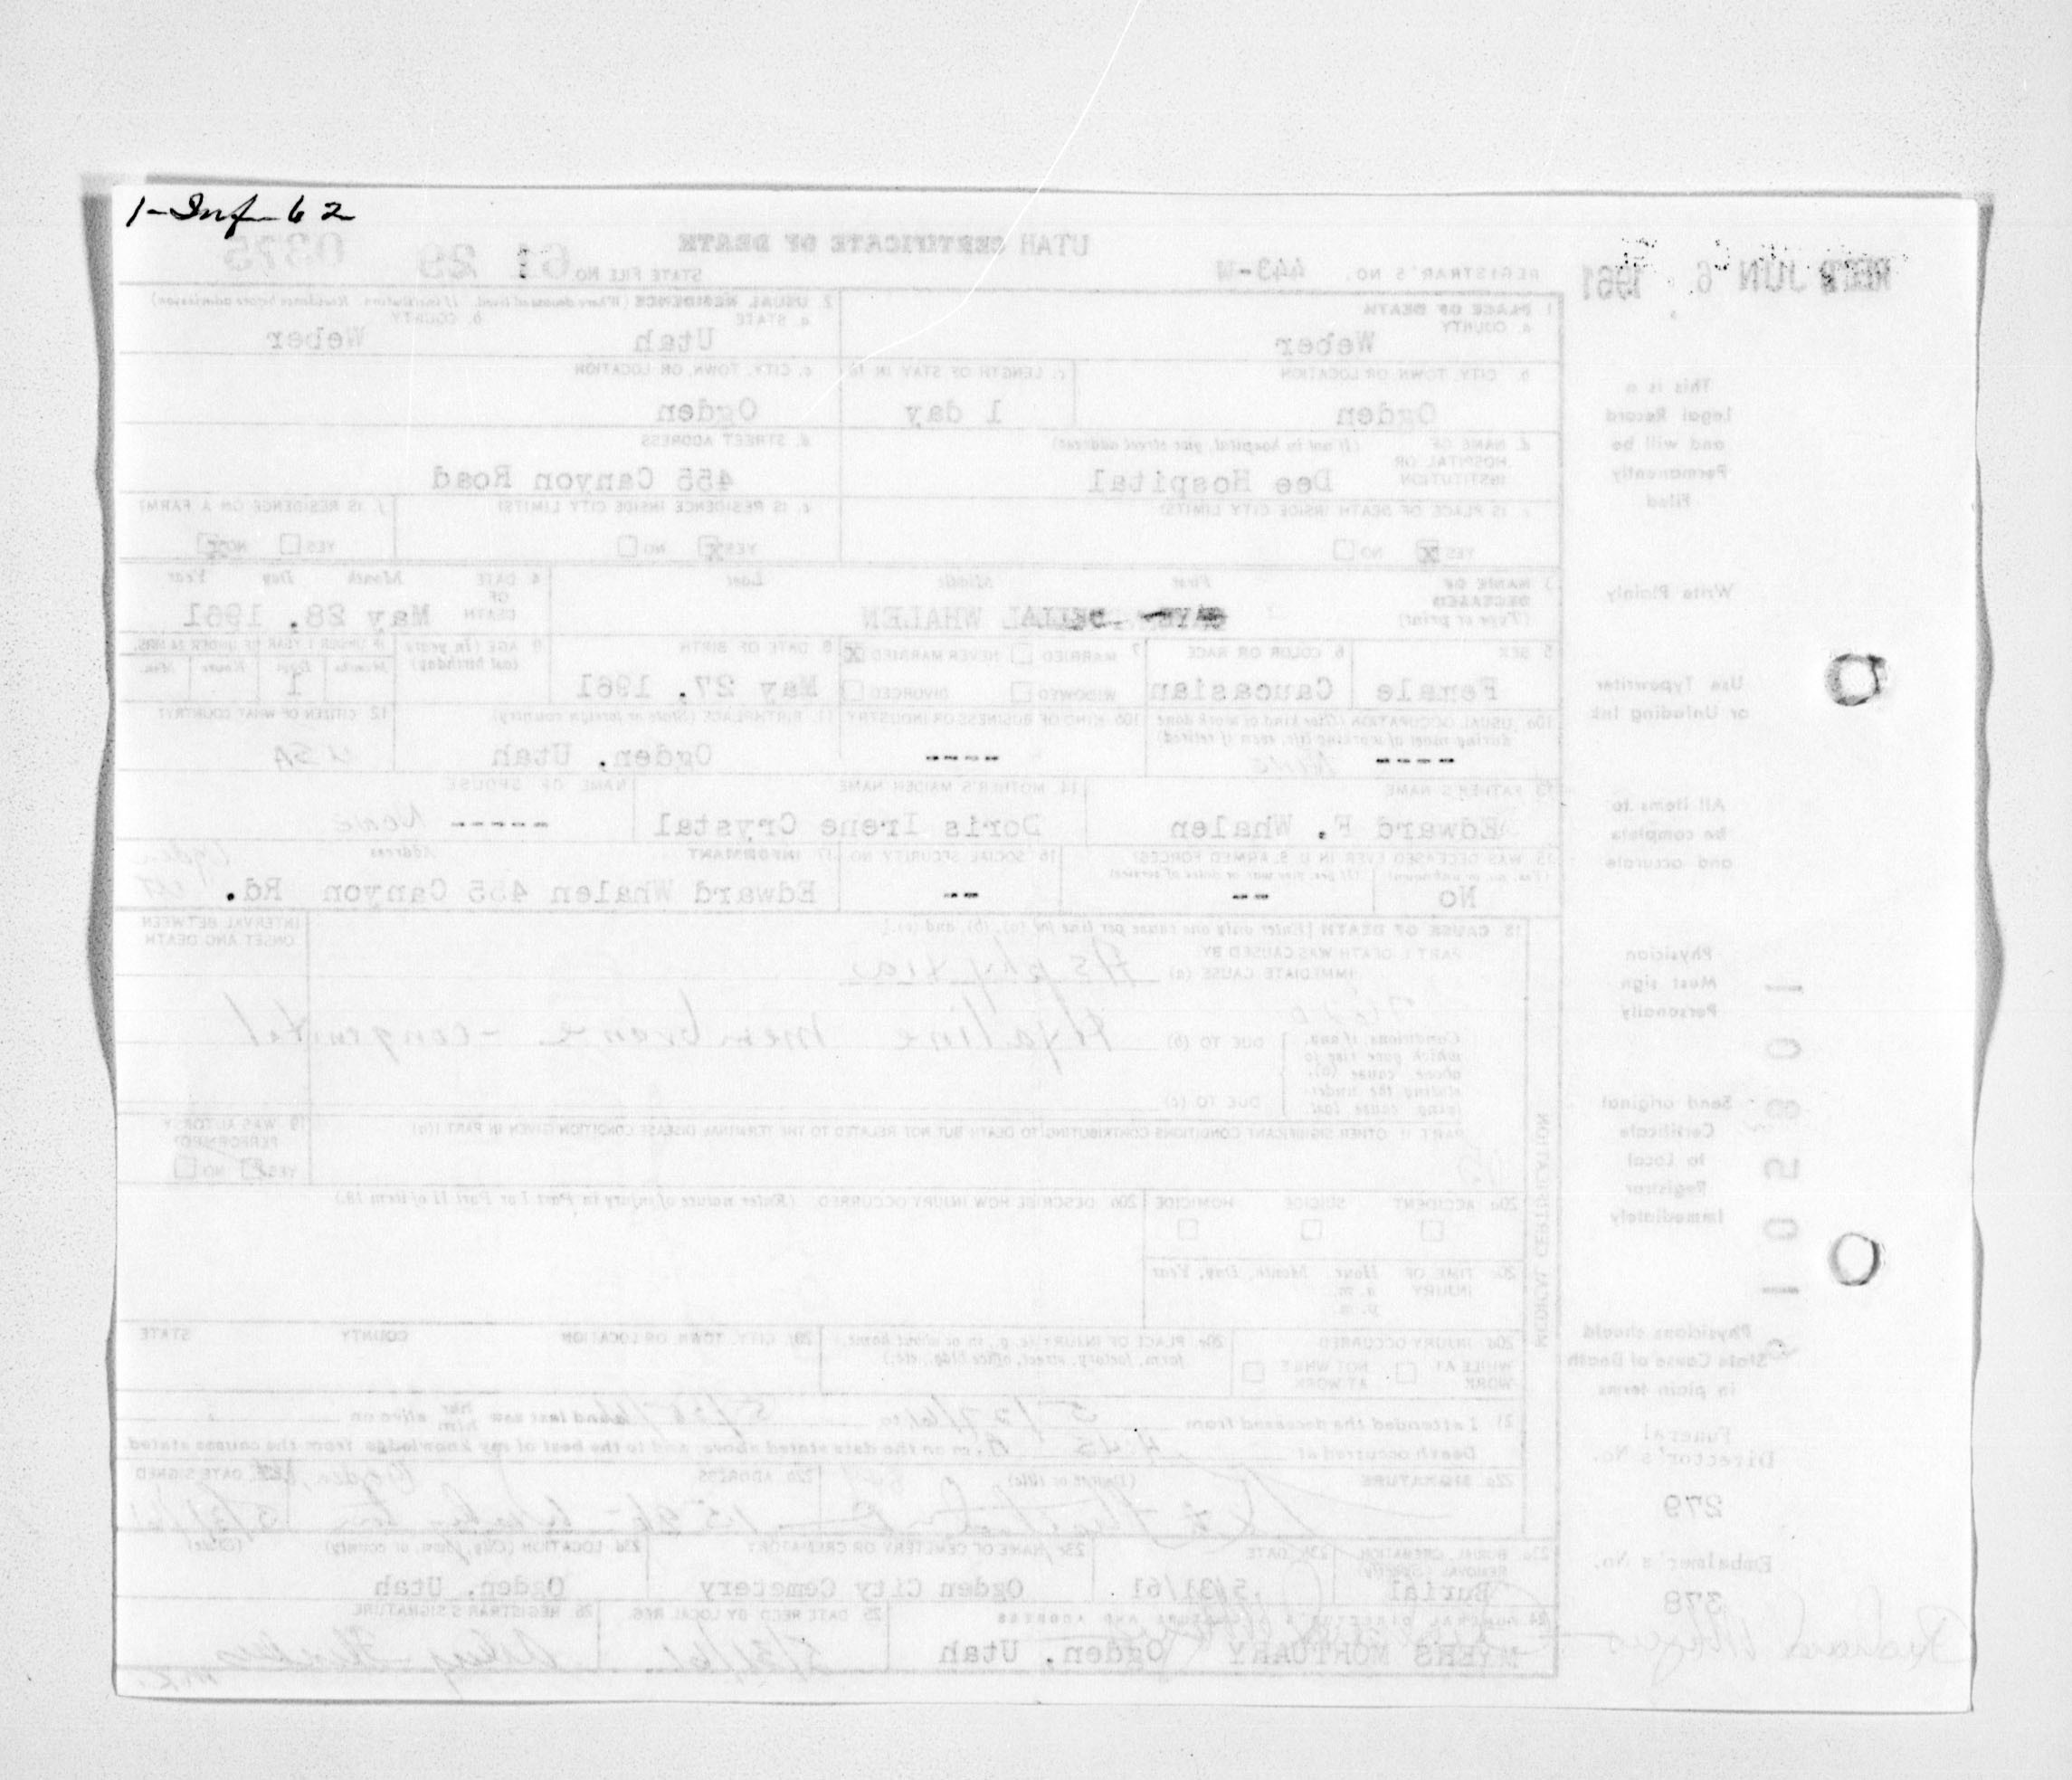 1-Inf-62
UTAH CERTIFICATE OF DEATH
REC'D JUN 6 1961
REGISTRAR'S NO. 443-W
STATE FILE NO. 61 29 0375
1. PLACE OF DEATH
a. COUNTY
Weber
2. USUAL RESIDENCE (Where deceased lived. If institution: Residence before admission)
a. STATE
Utah
b. COUNTY
Weber
b. CITY, TOWN OR LOCATION
Ogden
c. LENGTH OF STAY IN 1b
1 day
c. CITY, TOWN, OR LOCATION
Ogden
d. NAME OF HOSPITAL OR INSTITUTION (If not in hospital, give street address)
Dee Hospital
d. STREET ADDRESS
455 Canyon Road
e. IS PLACE OF DEATH INSIDE CITY LIMITS?
YES X NO
e. IS RESIDENCE INSIDE CITY LIMITS?
YES X NO
f. IS RESIDENCE ON A FARM?
YES NO X
3. NAME OF DECEASED (Type or print)
First Middle Last
WHALEN
4. DATE OF DEATH
Month Day Year
May 28, 1961
5. SEX
Female
6. COLOR OR RACE
Caucasian
7. MARRIED NEVER MARRIED X
WIDOWED DIVORCED
8. DATE OF BIRTH
May 27, 1961
9. AGE (In years last birthday)
IF UNDER 1 YEAR IF UNDER 24 HRS.
Months Days Hours Min.
1
10a. USUAL OCCUPATION (Give kind of work done during most of working life, even if retired)
---- None
10b. KIND OF BUSINESS OR INDUSTRY
----
11. BIRTHPLACE (State or foreign country)
Ogden, Utah
12. CITIZEN OF WHAT COUNTRY?
USA
13. FATHER'S NAME
Edward F. Whalen
14. MOTHER'S MAIDEN NAME
Doris Irene Crystal
NAME OF SPOUSE
----- None
15. WAS DECEASED EVER IN U.S. ARMED FORCES?
(Yes, no, or unknown) (If yes, give war or dates of service)
No --
16. SOCIAL SECURITY NO.
--
17. INFORMANT Address
Edward Whalen 455 Canyon Rd. Ogden
MEDICAL CERTIFICATION
18. CAUSE OF DEATH [Enter only one cause per line for (a), (b), and (c).]
PART I. DEATH WAS CAUSED BY:
IMMEDIATE CAUSE (a) Asphyxia
INTERVAL BETWEEN ONSET AND DEATH
Conditions, if any, which gave rise to above cause (a), stating the underlying cause last.
DUE TO (b) Hyaline membrane - congenital
DUE TO (c)
PART II. OTHER SIGNIFICANT CONDITIONS CONTRIBUTING TO DEATH BUT NOT RELATED TO THE TERMINAL DISEASE CONDITION GIVEN IN PART I(a)
19. WAS AUTOPSY PERFORMED?
YES NO
20a. ACCIDENT SUICIDE HOMICIDE
20b. DESCRIBE HOW INJURY OCCURRED. (Enter nature of injury in Part I or Part II of item 18.)
20c. TIME OF INJURY Hour Month, Day, Year
a. m.
p. m.
20d. INJURY OCCURRED
WHILE AT WORK NOT WHILE AT WORK
20e. PLACE OF INJURY (e. g., in or about home, farm, factory, street, office bldg., etc.)
20f. CITY, TOWN, OR LOCATION COUNTY STATE
21. I attended the deceased from 5/27/61 to 5/28/61 and last saw her him alive on
Death occurred at 4:45 A. m on the date stated above; and to the best of my knowledge, from the causes stated.
22a. SIGNATURE (Degree or title)
22b. ADDRESS
Ogden
22c. DATE SIGNED
5/31/61
23a. BURIAL, CREMATION, REMOVAL (Specify)
Burial
23b. DATE
5/31/61
23c. NAME OF CEMETERY OR CREMATORY
Ogden City Cemetery
23d. LOCATION (City, town, or county) (State)
Ogden, Utah
24. FUNERAL DIRECTOR'S SIGNATURE AND ADDRESS
MYERS MORTUARY Ogden, Utah
25. DATE RECD. BY LOCAL REG.
5/31/61
26. REGISTRAR'S SIGNATURE
This is a
Legal Record
and will be
Permanently
Filed
Write Plainly
Use Typewriter
or Unfading Ink
All items to
be complete
and accurate
Physician
Must sign
Personally
Send original
Certificate
to Local
Registrar
Immediately
Physicians should
State Cause of Death
in plain terms
Funeral
Director's No.
279
Embalmer's No.
378